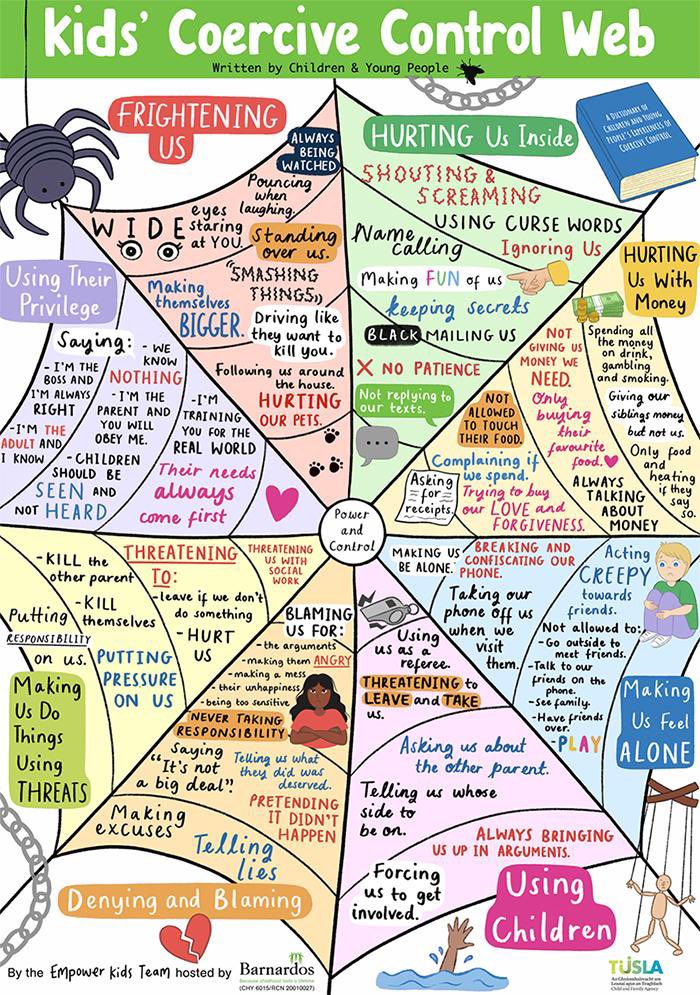 Kids' Coercive Control Web
Written by Children & Young People
FRIGHTENING
US
ALWAYS
BEING
WATCHED
Pouncing
when
laughing.
WIDE
eyes
staring
at YOU.
Standing
over us.
"SMASHING
THINGS„
Making
themselves
BIGGER.
Driving like
they want to
kill you.
Following us around
the house.
HURTING
OUR PETS.
HURTING Us Inside
SHOUTING &
SCREAMING
USING CURSE WORDS
Name
calling
Ignoring Us
Making FUN of us
keeping secrets
BLACK MAILING US
X NO PATIENCE
Not replying to
our texts.
A DICTIONARY OF
CHILDREN AND YOUNG
PEOPLE'S EXPERIENCES OF
COERCIVE CONTROL
HURTING
Us With
Money
Spending all
the money
on drink,
gambling
and smoking.
Giving our
siblings money
but not us.
Only food
and
heating
if they
say
so.
NOT
GIVING US
MONEY WE
NEED.
Only
buying
their
favourite
food.
ALWAYS
TALKING
ABOUT
MONEY
NOT
ALLOWED
TO TOUCH
THEIR FOOD.
Complaining if
we spend.
Trying to buy
our LOVE and
FORGIVENESS.
Asking
for
receipts.
Using Their
Privilege
Saying:
- I'M THE
BOSS AND
I'M ALWAYS
RIGHT
-I'M THE
ADULT AND
I KNOW
- WE
KNOW
NOTHING
- I'M THE
PARENT AND
YOU WILL
OBEY ME.
- CHILDREN
SHOULD BE
SEEN AND
NOT HEARD
-I'M
TRAINING
YOU FOR THE
REAL WORLD
Their needs
always
come first
Power
and
Control
-KILL the
other parent
-KILL
themselves
Putting
RESPONSIBILITY
on us.
PUTTING
PRESSURE
ON US
THREATENING
TO:
-leave if we don't
do something
- HURT
US
THREATENING
US WITH
SOCIAL
WORK
Making
Us Do
Things
Using
THREATS
BLAMING
US FOR:
- the arguments
- making them ANGRY
- making a mess
- their unhappiness
- being too sensitive
NEVER TAKING
RESPONSIBILITY
Saying
"It's not
a big deal".
Telling us what
they did was
deserved.
PRETENDING
IT DIDN'T
HAPPEN
Making
excuses
Telling
lies
Denying and Blaming
MAKING US
BE ALONE.
BREAKING AND
CONFISCATING OUR
PHONE.
Taking our
phone off us
when we
visit
them.
Acting
CREEPY
towards
friends.
Not allowed to:
- Go outside to
meet friends.
-Talk to our
friends on the
phone.
-See family.
-Have friends
over.
-PLAY
Making
Us Feel
ALONE
Using
us as a
referee.
THREATENING to
LEAVE and TAKE
us.
Asking us about
the other parent.
Telling us whose
side to
be on.
ALWAYS BRINGING
US UP IN ARGUMENTS.
Forcing
us to get
involved.
Using
Children
By the Empower Kids Team hosted by
Barnardos
Because childhood lasts a lifetime
(CHY 6015/RCN 20010027)
TUSLA
An Ghníomhaireacht um
Leanaí agus an Teaghlach
Child and Family Agency